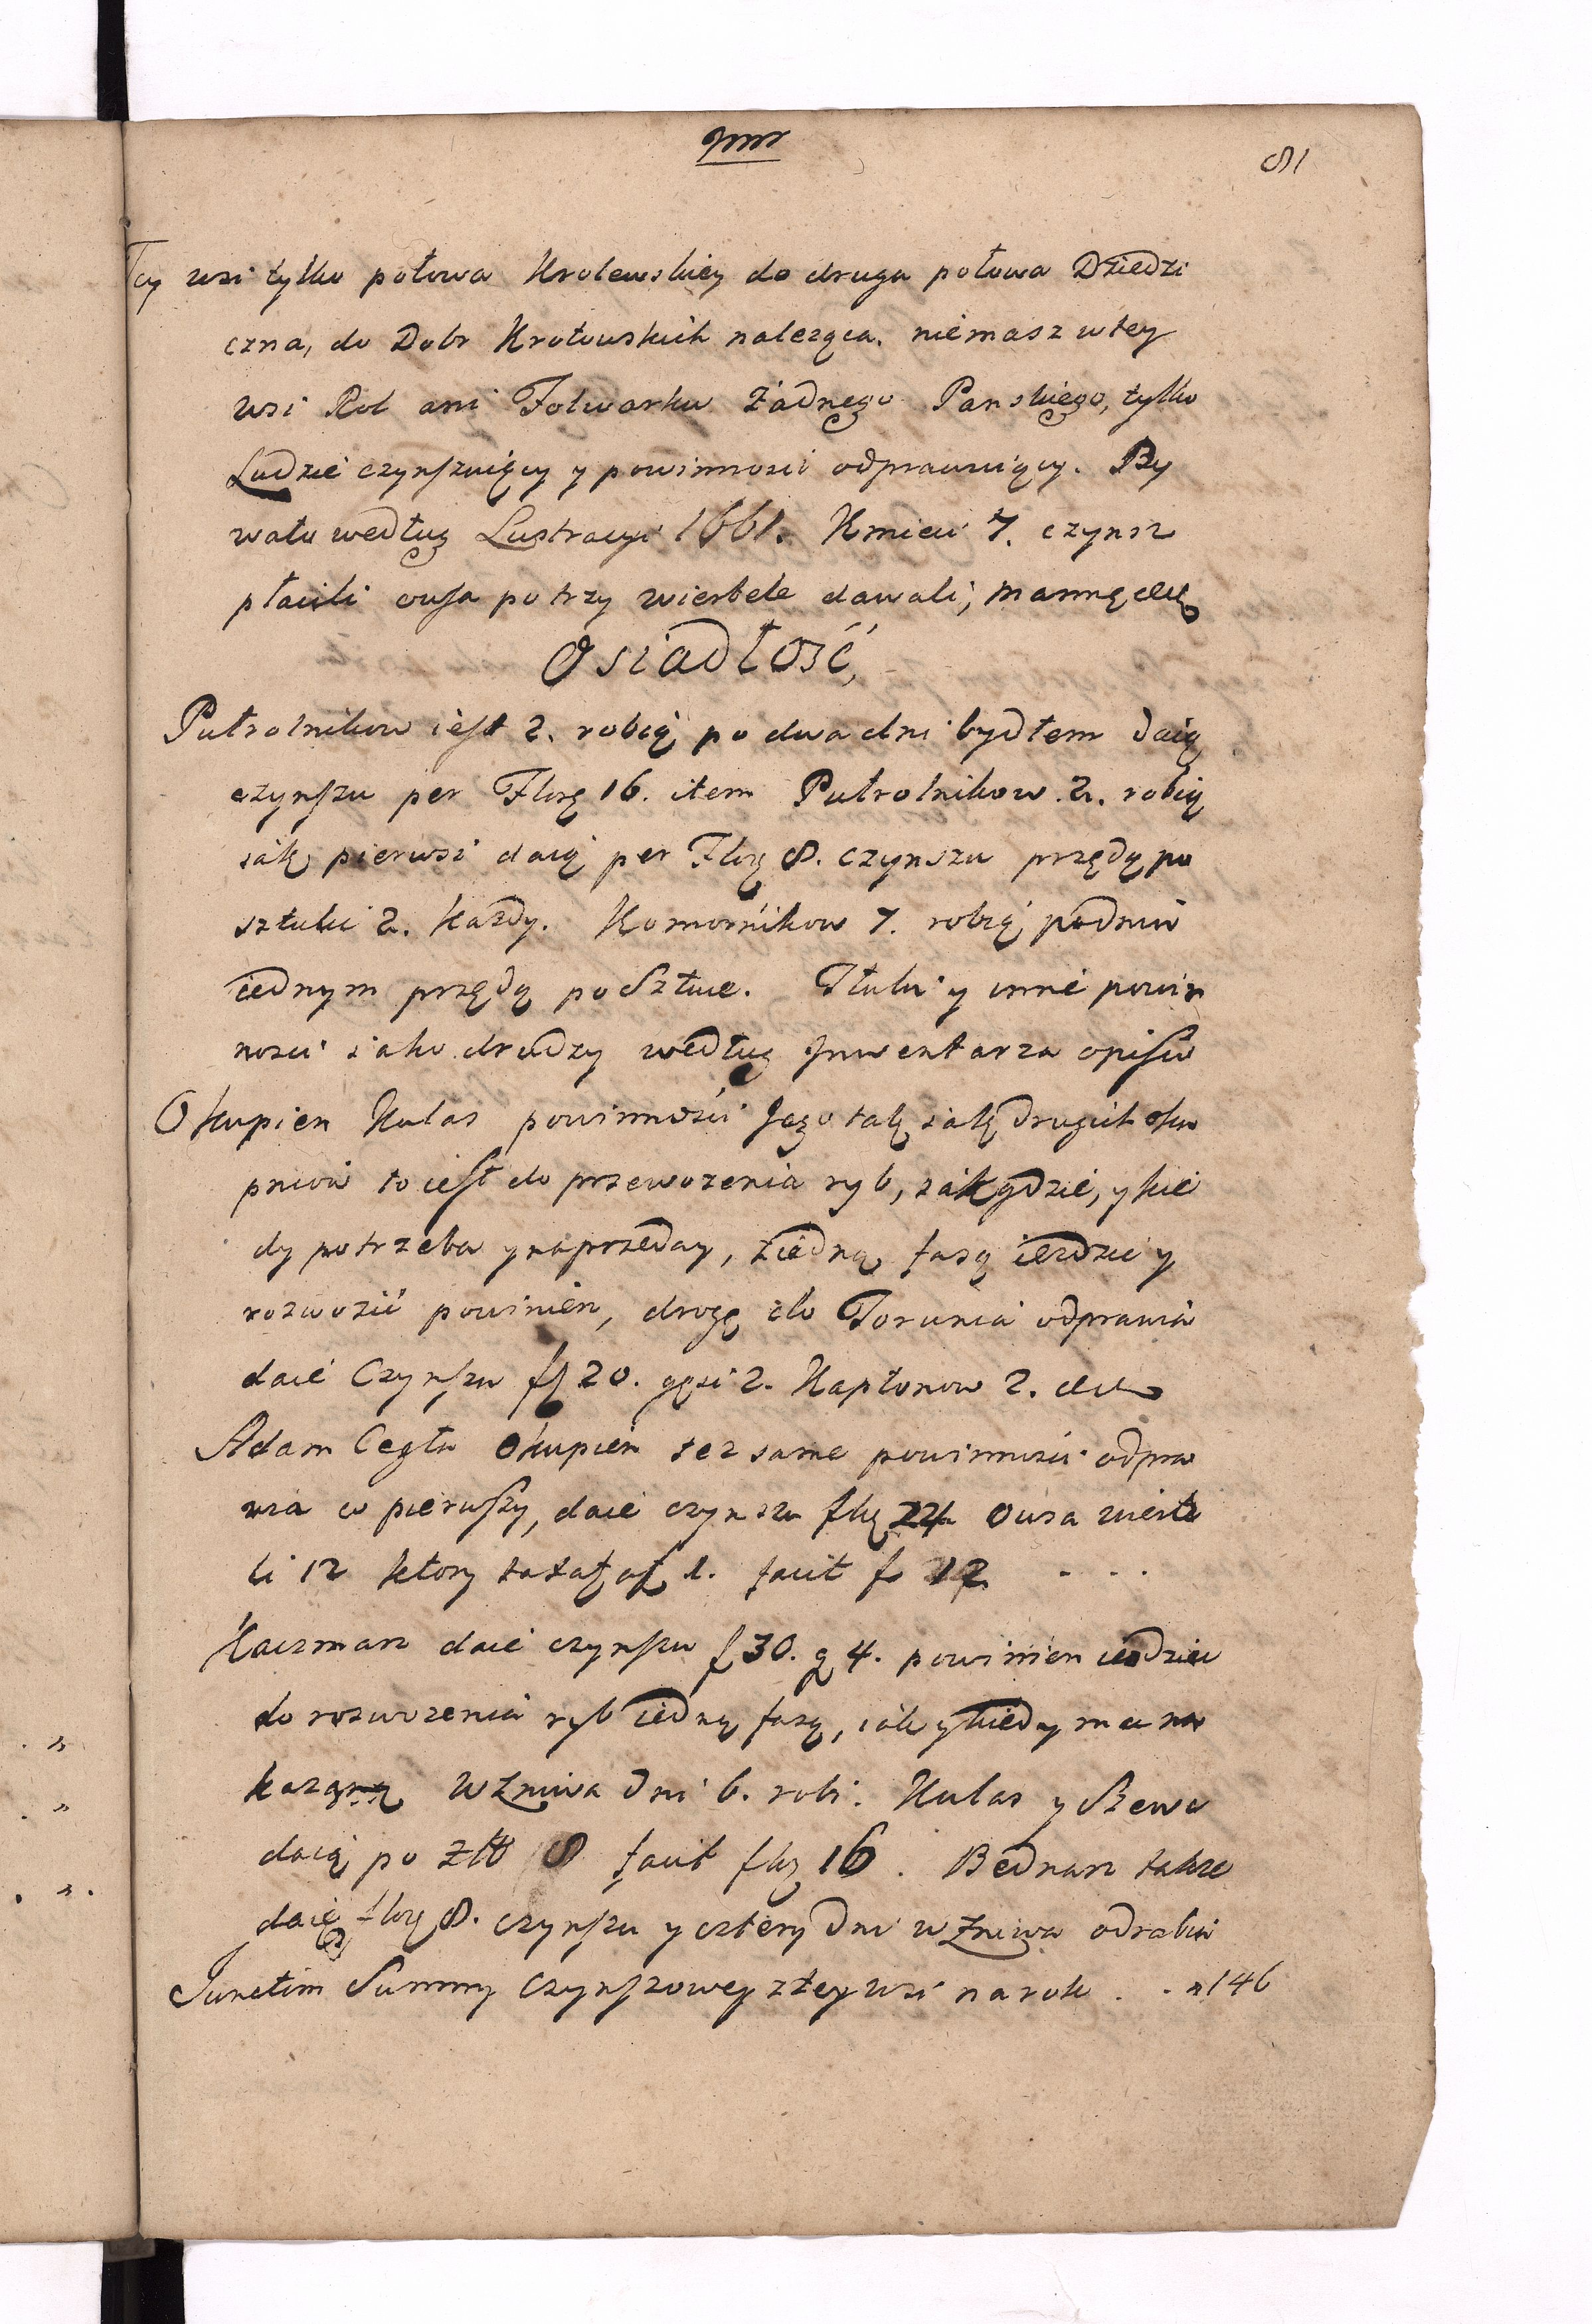 81
Tey wsi tylko połowa Krolewskiey do druga połowa Dziedzi
czna, do Dobr Krotowskich naleząca. niemasz wtey
wsi Rol ani Folwarku Żadnego Panskiego, tylko
Ludzie czynszuiący y powinnosci odprawuiący. By
wało według Lustracyi 1661. Kmieci 7. czynsz
płacili owsa po trzy wiertele dawali,
Osiadłość,
Pułrolnikow iest 2. robią po dwa dni bydłem daią
czynszu per Flor 16. item Pułrolnikow 2. robią
iak pierwsi daią per Flor 8. czynszu przędą po
sztuki 2. każdy. Komornikow 7. robią podniu
iednym przędą po Sztuce. Tłuki y inne powin
nosci iako drudzy według Inwentarza opisu
Okupien Kulas powinnosci Jego tak iak drugich oku
pniow to iest do przewozenia ryb, iak gdzie, y kie
dy potrzeba y naprzeday, ziedną fasą iezdzic y
rozwozić powinien, drogę do Torunia odprawia
daie Czynszu fl 20. gęsi 2. Kapłonow 2.
Adam Cegła Okupien tez same powinnosci odpra
wia co pierwszy, daie czynszu flor 24 Owsa wierte
li 12 ktory taxat. a f 1. facit f 12 . . .
Kaczmarz daie czynszu f 30. g 4. powinien iezdzic
do rozwozenia ryb iedną fasą, iak y kiedy mu na
kazą wZniwa dni 6. robi. Kulas y Szewc
daią po Złł 8 facit flor 16. Bednarz takze
daie flor 8. czynszu y cztery dni wZniwa odrabia
Junctim Summy Czynszowey ztey wsi na rok . . " 146